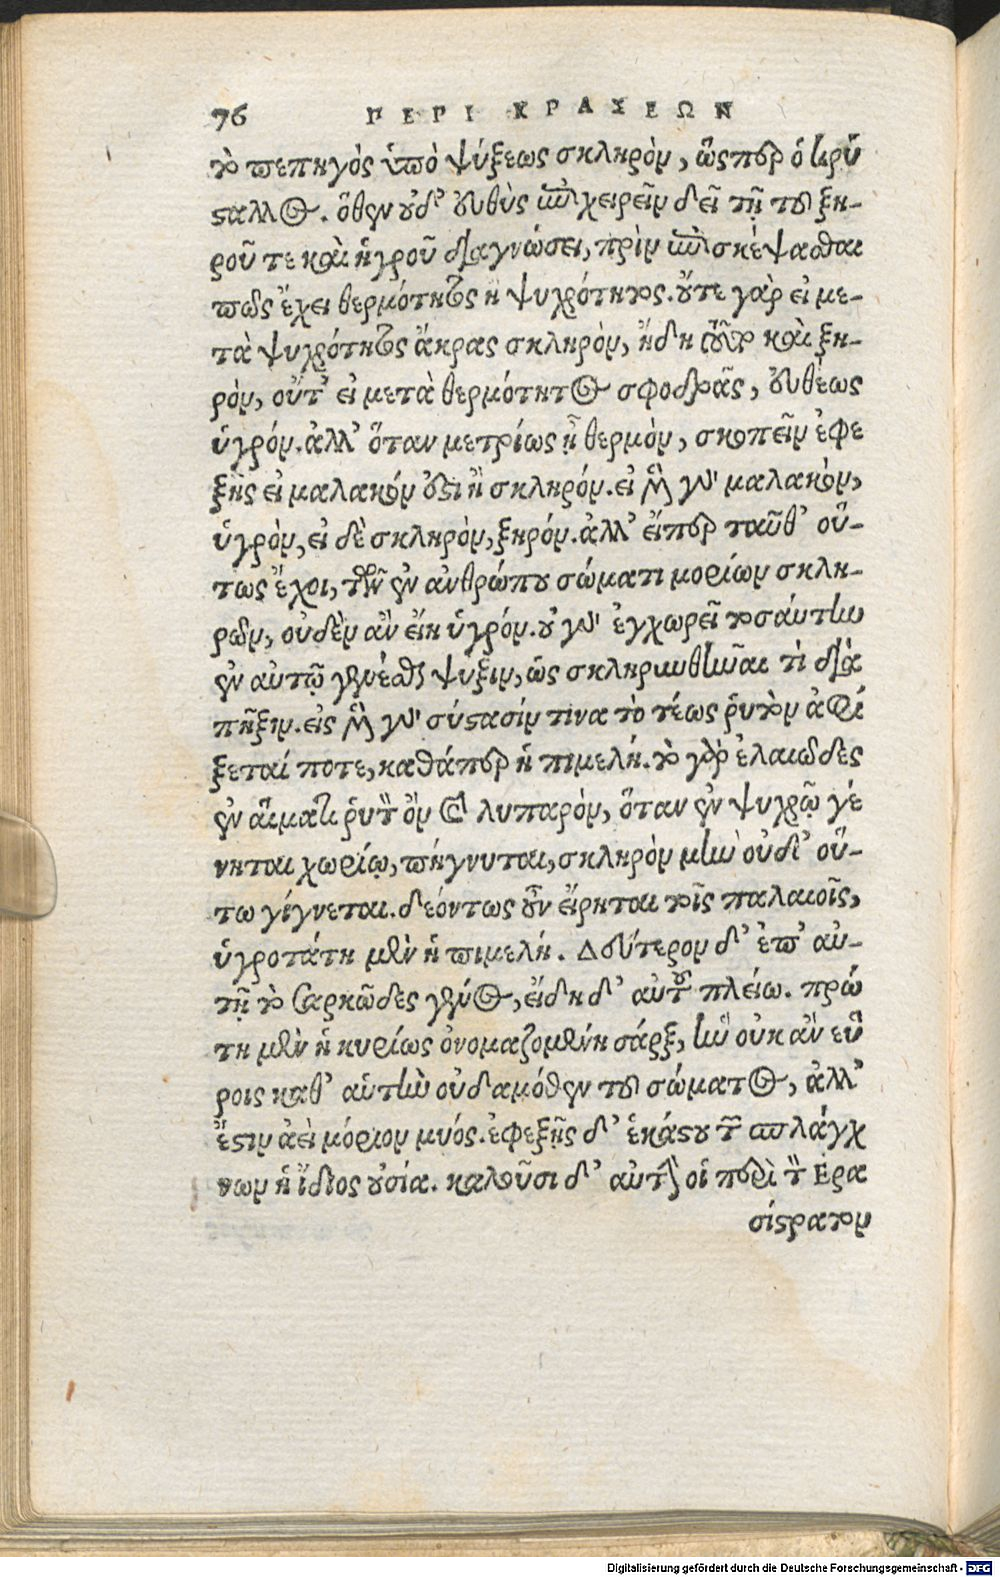 76 ΠΕΡΙ ΚΡΑΣΕΩΝ
τὸ πεπηγὸς ὑπὸ ψύξεως σκληρὸν, ὥσπερ ὁ κρύ
σαλλος. ὅθεν οὐδ᾽ εὐθὺς ἐπιχειρεῖν δεῖ τῇ τοῦ ξη-
ροῦ τε καὶ ὑγροῦ διαγνώσει, πρὶν ἐπισκέψασθαι
πῶς ἔχει θερμότητος ἢ ψυχρότητος. οὔτε γὰρ εἰ με-
τὰ ψυχρότητος ἄκρας σκληρὸν, ἤδη τοῦτο καὶ ξη-
ρὸν, οὔτ᾽ εἰ μετὰ θερμότητος σφοδρᾶς, εὐθέως
ὑγρόν. ἀλλ᾽ ὅταν μετρίως ᾖ θερμὸν, σκοπεῖν ἐφε
ξῆς εἰ μαλακόν ἐστι ἢ σκληρόν. εἰ μὲν γὰρ μαλακὸν,
ὑγρὸν, εἰ δὲ σκληρὸν, ξηρόν. ἀλλ᾽ εἴπερ ταῦθ᾽ οὕ-
τως ἔχοι, τῶν ἐν ἀνθρώπου σώματι μορίων σκλη-
ρῶν, οὐδὲν ἂν εἴη ὑγρόν. οὐ γὰρ ἐγχωρεῖ τοσαύτην
ἐν αὐτῷ γενέσθαι ψύξιν, ὡς σκληρυνθῆναι τὶ διὰ
πῆξιν. εἰς μὲν γὰρ σύστασίν τινα τὸ τέως ῥυτὸν ἀφί
ξεταί ποτε, καθάπερ ἡ πιμελή. τὸ γὰρ ἐλαιῶδες
ἐν αἵματι ῥυτὸν ὂν καὶ λυπαρὸν, ὅταν ἐν ψυχρῷ γέ
νηται χωρίῳ, πήγνυται, σκληρὸν μὴν οὐδ᾽ οὕ-
τω γίγνεται. δεόντως οὖν εἴρηται τοῖς παλαιοῖς,
ὑγροτάτη μὲν ἡ πιμελή. Δεύτερον δ᾽ ἐπ᾽ αὐ-
τῇ τὸ σαρκῶδες γένος, εἴδη δ᾽ αὐτοῦ πλείω. πρώ
τη μὲν ἡ κυρίως ὀνομαζομένη σάρξ, ἣν οὐκ ἂν εὕ
ροις καθ᾽ αὑτὴν οὐδαμόθεν τοῦ σώματος, ἀλλ᾽
ἔστιν ἀεὶ μόριον μυός. ἐφεξῆς δ᾽ ἑκάστου τῶν σπλάγχ
νων ἡ ἴδιος οὐσία. καλοῦσι δ᾽ αὐτὴν οἱ περὶ τὸν Ερα
σίστρατον
Digitalisierung gefördert durch die Deutsche Forschungsgemeinschaft - DFG